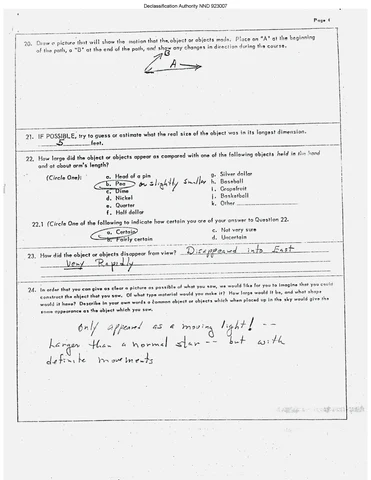 Declassification Authority NND 923007
Page 4
20. Draw a picture that will show the motion that the object or objects made. Place an "A" at the beginning
of the path, a "B" at the end of the path, and show any changes in direction during the course.
B
A
21. IF POSSIBLE, try to guess or estimate what the real size of the object was in its longest dimension.
5 feet.
22. How large did the object or objects appear as compared with one of the following objects held in the hand
and at about arm's length?
(Circle One): a. Head of a pin g. Silver dollar
b. Pea or slightly smaller h. Baseball
c. Dime i. Grapefruit
d. Nickel j. Basketball
e. Quarter k. Other
f. Half dollar
22.1 (Circle One of the following to indicate how certain you are of your answer to Question 22.
a. Certain c. Not very sure
b. Fairly certain d. Uncertain
23. How did the object or objects disappear from view? Disappeared into East
Very Rapidly
24. In order that you can give as clear a picture as possible of what you saw, we would like for you to imagine that you could
construct the object that you saw. Of what type material would you make it? How large would it be, and what shape
would it have? Describe in your own words a common object or objects which when placed up in the sky would give the
same appearance as the object which you saw.
Only appeared as a moving light! --
Larger than a normal star -- but with
definite movements